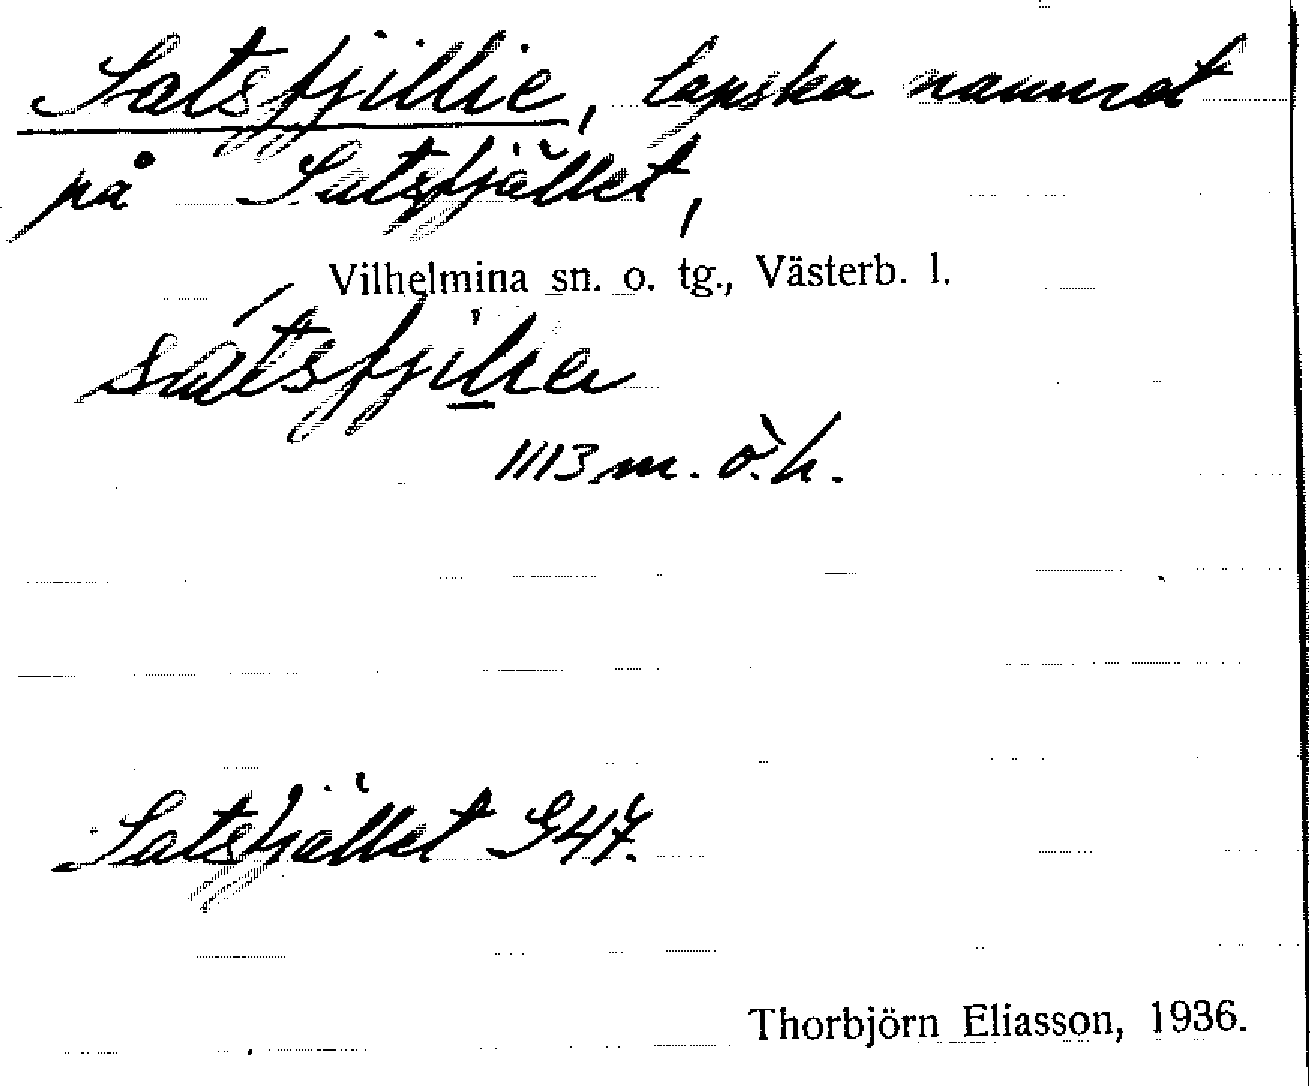 Satsfjillie, lapska namnet
på Satsfjället,
Vilhelmina sn. o. tg., Västerb. l.
sátsfjilie
1113 m. ö. h.
Satsfjället G47.
Thorbjörn Eliasson, 1936.